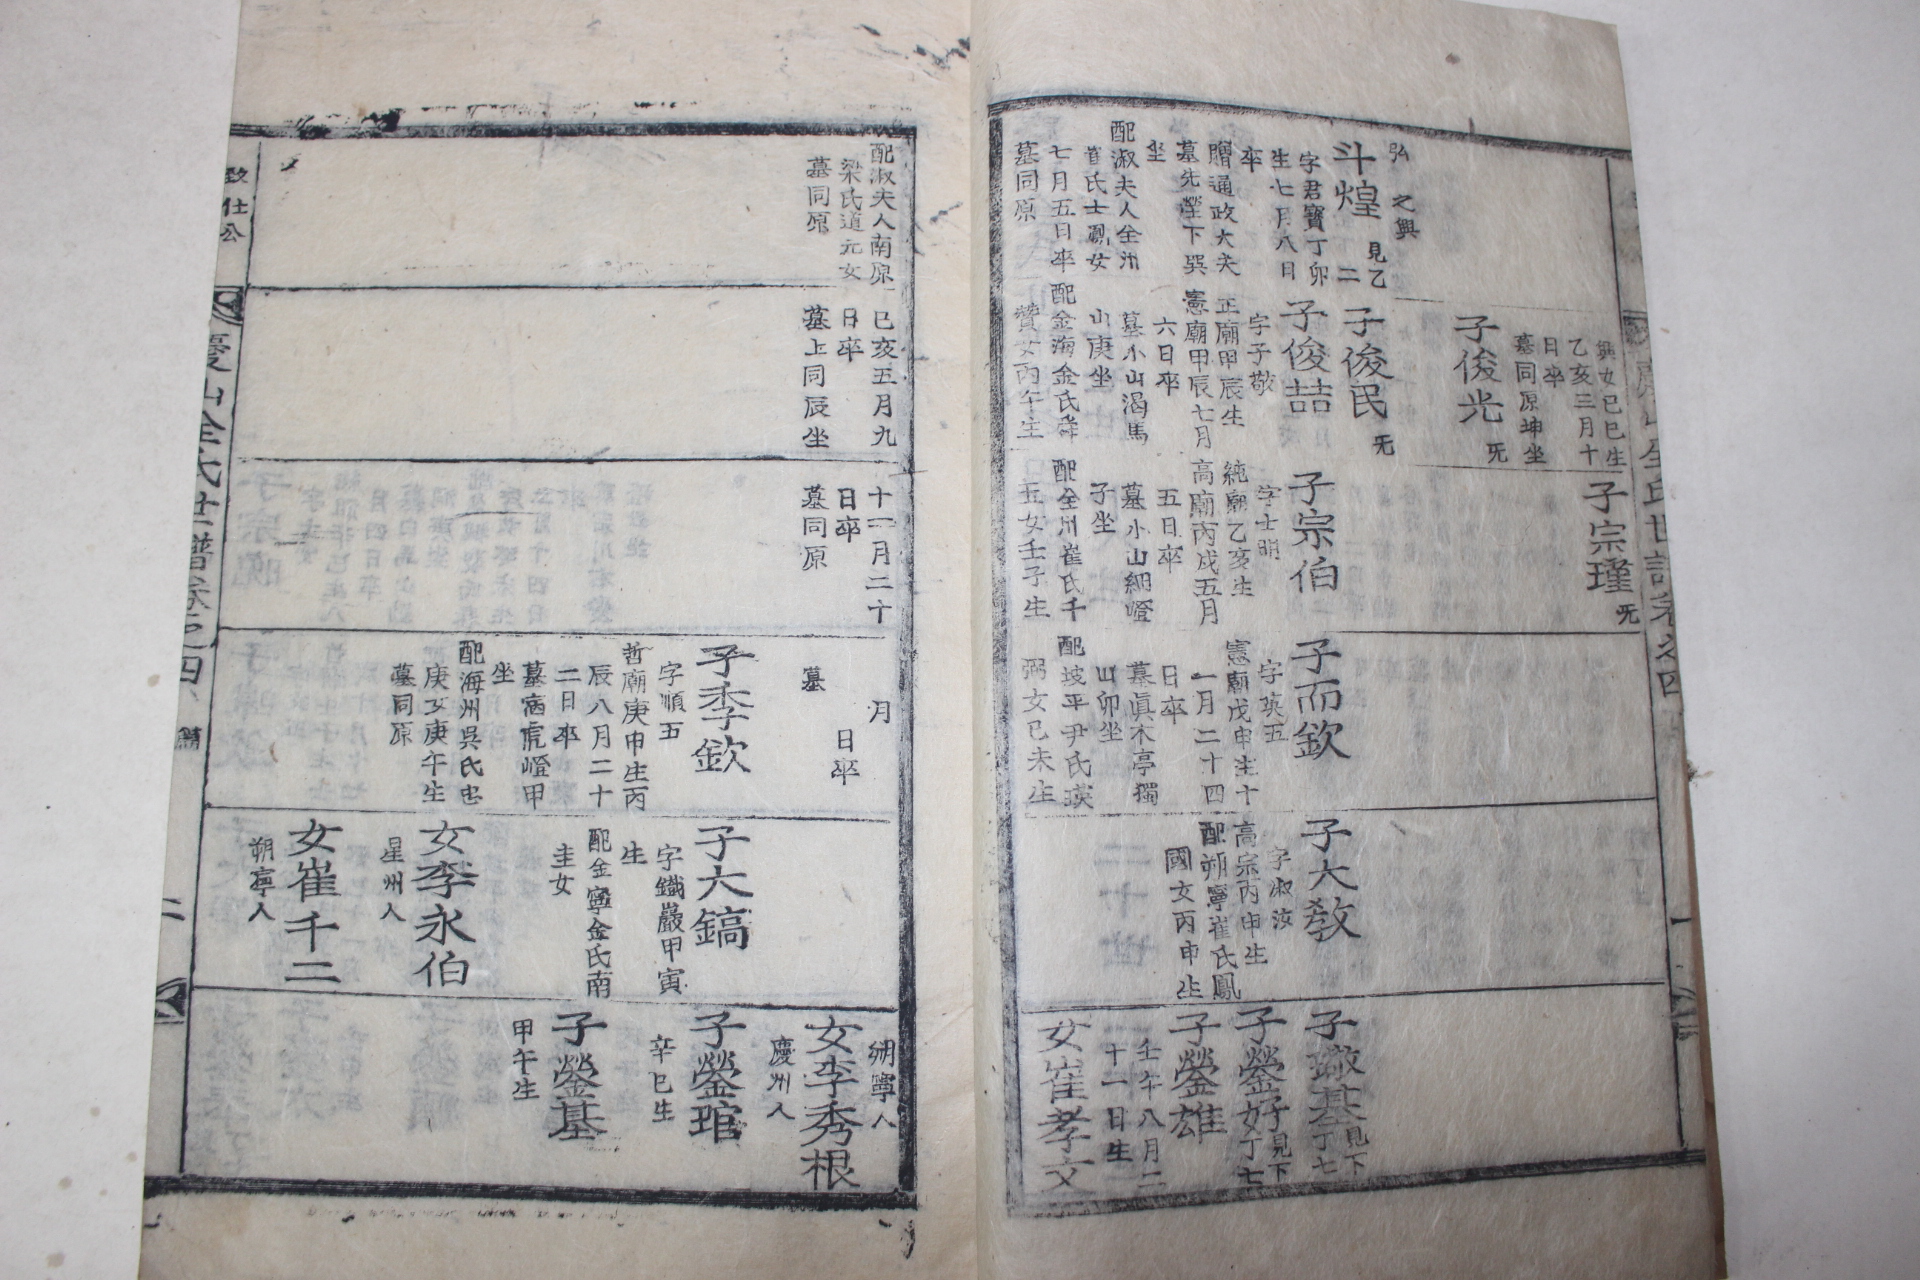 弘
之興
斗煌
見乙
二
字君寶丁卯
生七月八日
卒
贈通政大夫
墓先塋下巽
坐
配淑夫人全州
崔氏士鳳女
七月五日卒
墓同原
興女己巳生
乙亥三月十
日卒
墓同原坤坐
子俊光
旡
子俊民
旡
子俊喆
字子敬
正廟甲辰生
憲廟甲辰七月
六日卒
墓小山渴馬
山庚坐
配金海金氏舜
贊女丙午生
子宗瑾
旡
子宗伯
字士明
純廟乙亥生
高廟丙戌五月
五日卒
墓小山細嶝
子坐
配全州崔氏千
五女壬子生
子而欽
字英五
憲廟戊申生十
一月二十四
日卒
墓眞木亭獨
山卯坐
配坡平尹氏瑛
弼女己未生
子大教
字淑汝
高宗丙申生
配朔寧崔氏鳳
國女丙申生
子璥基
見下
丁七
子鎣好
見下
女丁七
子鎣雄
壬午八月二
十一日生
女崔孝文
配淑夫人南原
梁氏道元女
墓同原
己亥五月九
日卒
墓上同辰坐
十一月二十
日卒
墓同原
月
日卒
墓
子季欽
字順五
哲廟庚申生丙
辰八月二十
二日卒
墓虎嶝甲
坐
配海州吳氏忠
庚女庚午生
墓同原
子大鎬
字鐵巖甲寅
生
配金寧金氏南
圭女
女李永伯
星州人
女崔千二
朔寧人
朔寧人
女李秀根
慶州人
子鎣琯
辛巳生
子鎣基
甲午生
致仕公
慶山全氏世譜卷之四
二